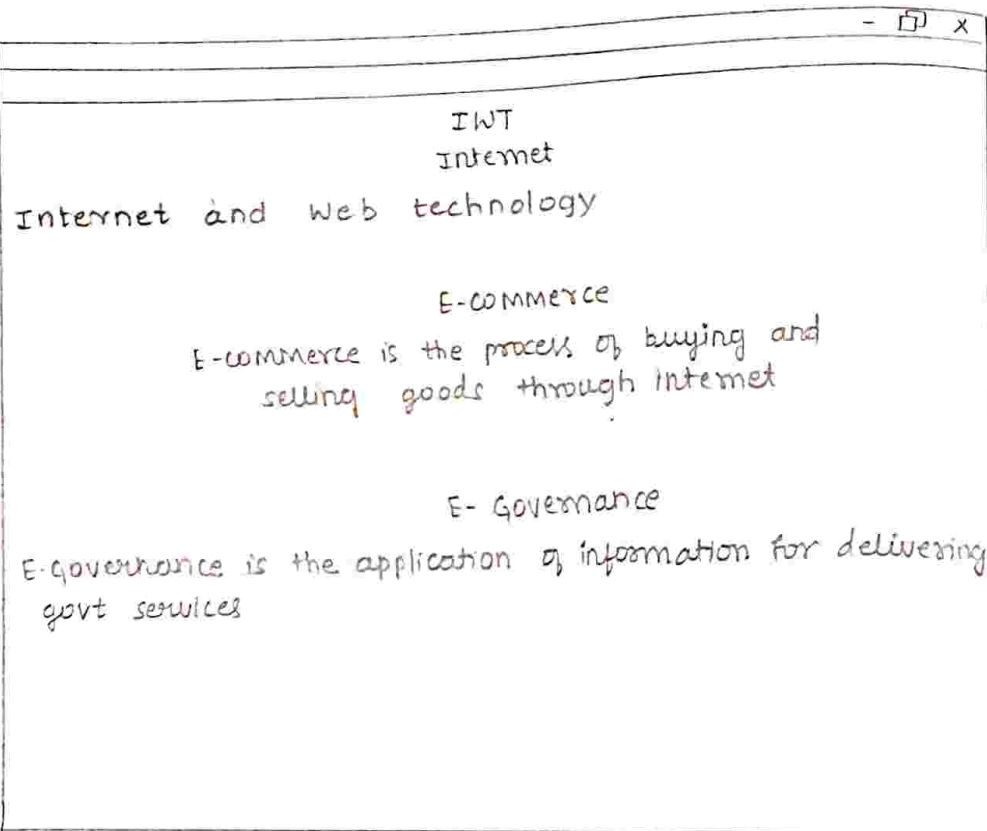 IWT
Internet
Internet and Web technology
E-commerce
E-commerce is the process of buying and
selling goods through internet
E- Governance
E-Governance is the application of information for delivering
govt services